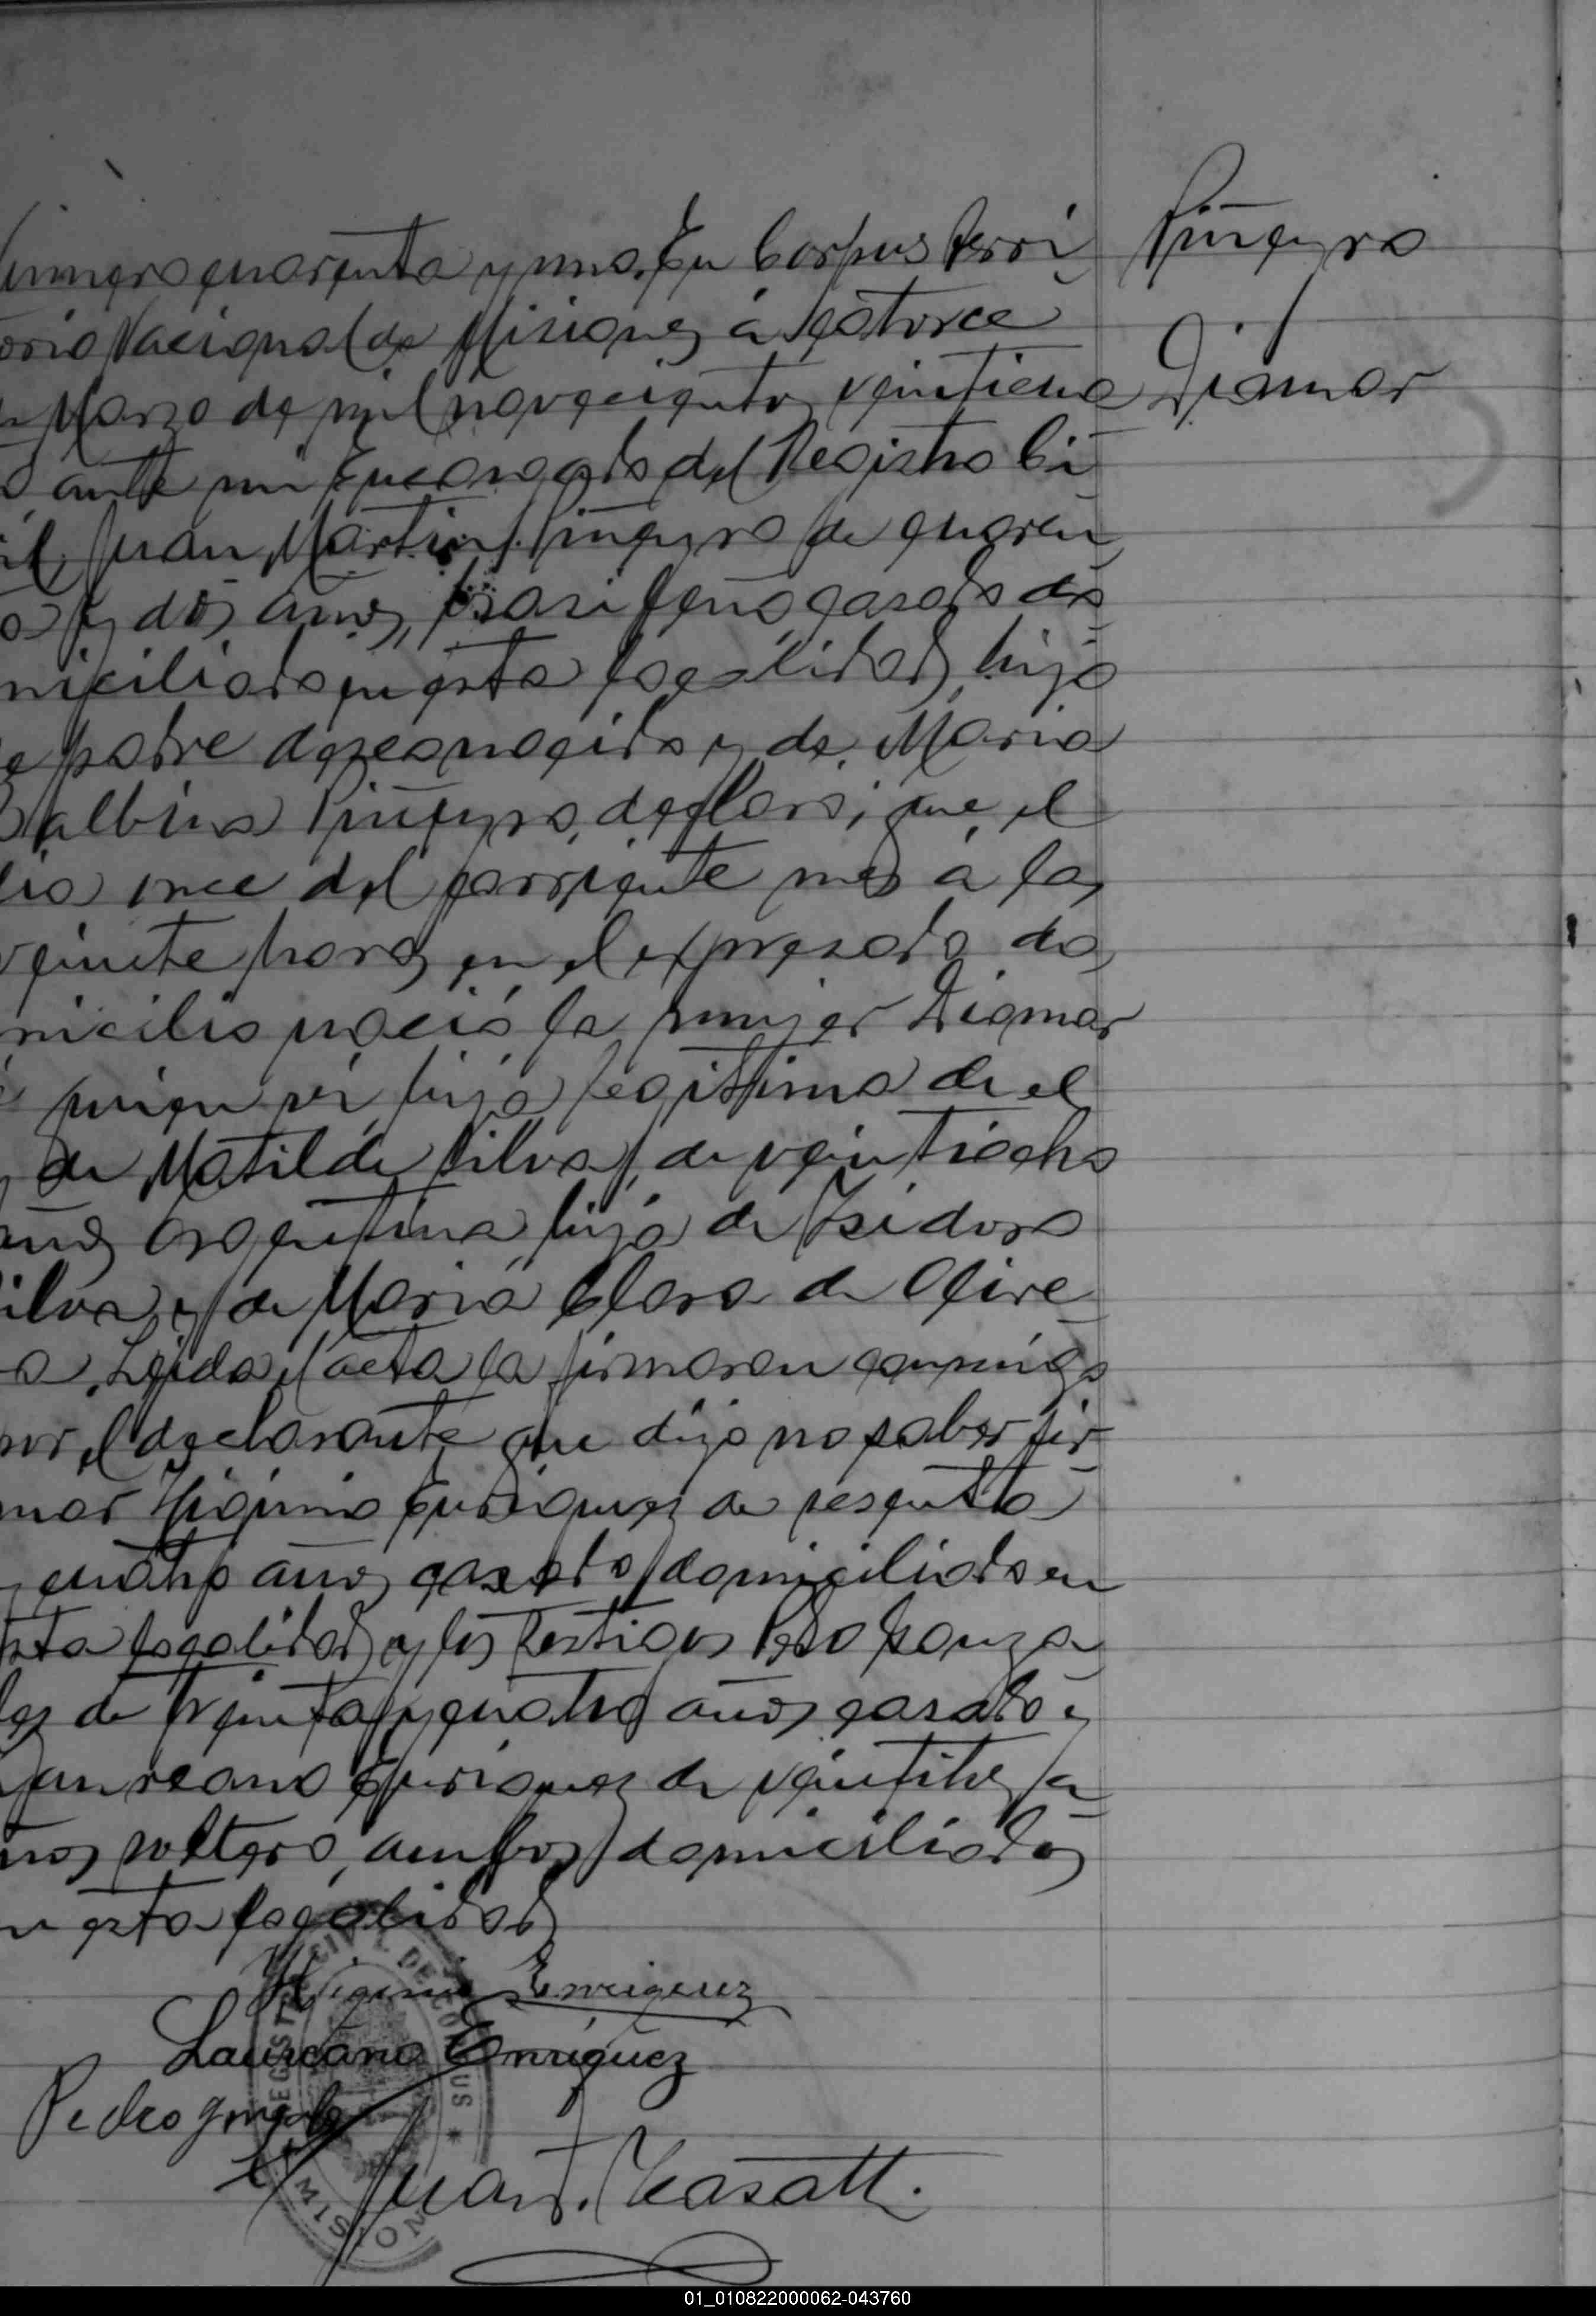 Piñeyro
Diamar
Numero cuarenta y uno. En Corpus Terri
orio Nacional de Misiones á catorce
Marzo de mil novecientos veintiuno
ante mi Encargado del Registro Ci
il, Juan Martin Piñeyro de cuaren
a y dos años, brasileño, casado do
miciliado en esta localidad, hijo
e padre desconocido y de Maria
Balbina Piñeyro, declaró; que el
dia once del corriente mes á las
veinte horas en el expresado do
micilio nació la mujer Diamar
quien es hija legitima de el
de Matilde Silva, de veintiocho
años argentina hija de Isidoro
ilva, y de Maria Clara de Olive
a. Leida el acta la firmaron conmigo
por el declarante que dijo no saber fir
mar Higinio Enriquez de sesenta
y cuatro años casado, domiciliado en
sta localidad y los testigos Pedro Gonza
les de treinta y cuatro años casado y
Laureano Enriquez de veintitres a
ños soltero, ambos domiciliados
n esta localidad
Higinio Enriquez
Laureano Enriquez
Pedro Gonzalez
Juan
REGISTRO CIVIL DE CORPUS * MISIONES
01_010822000062-043760